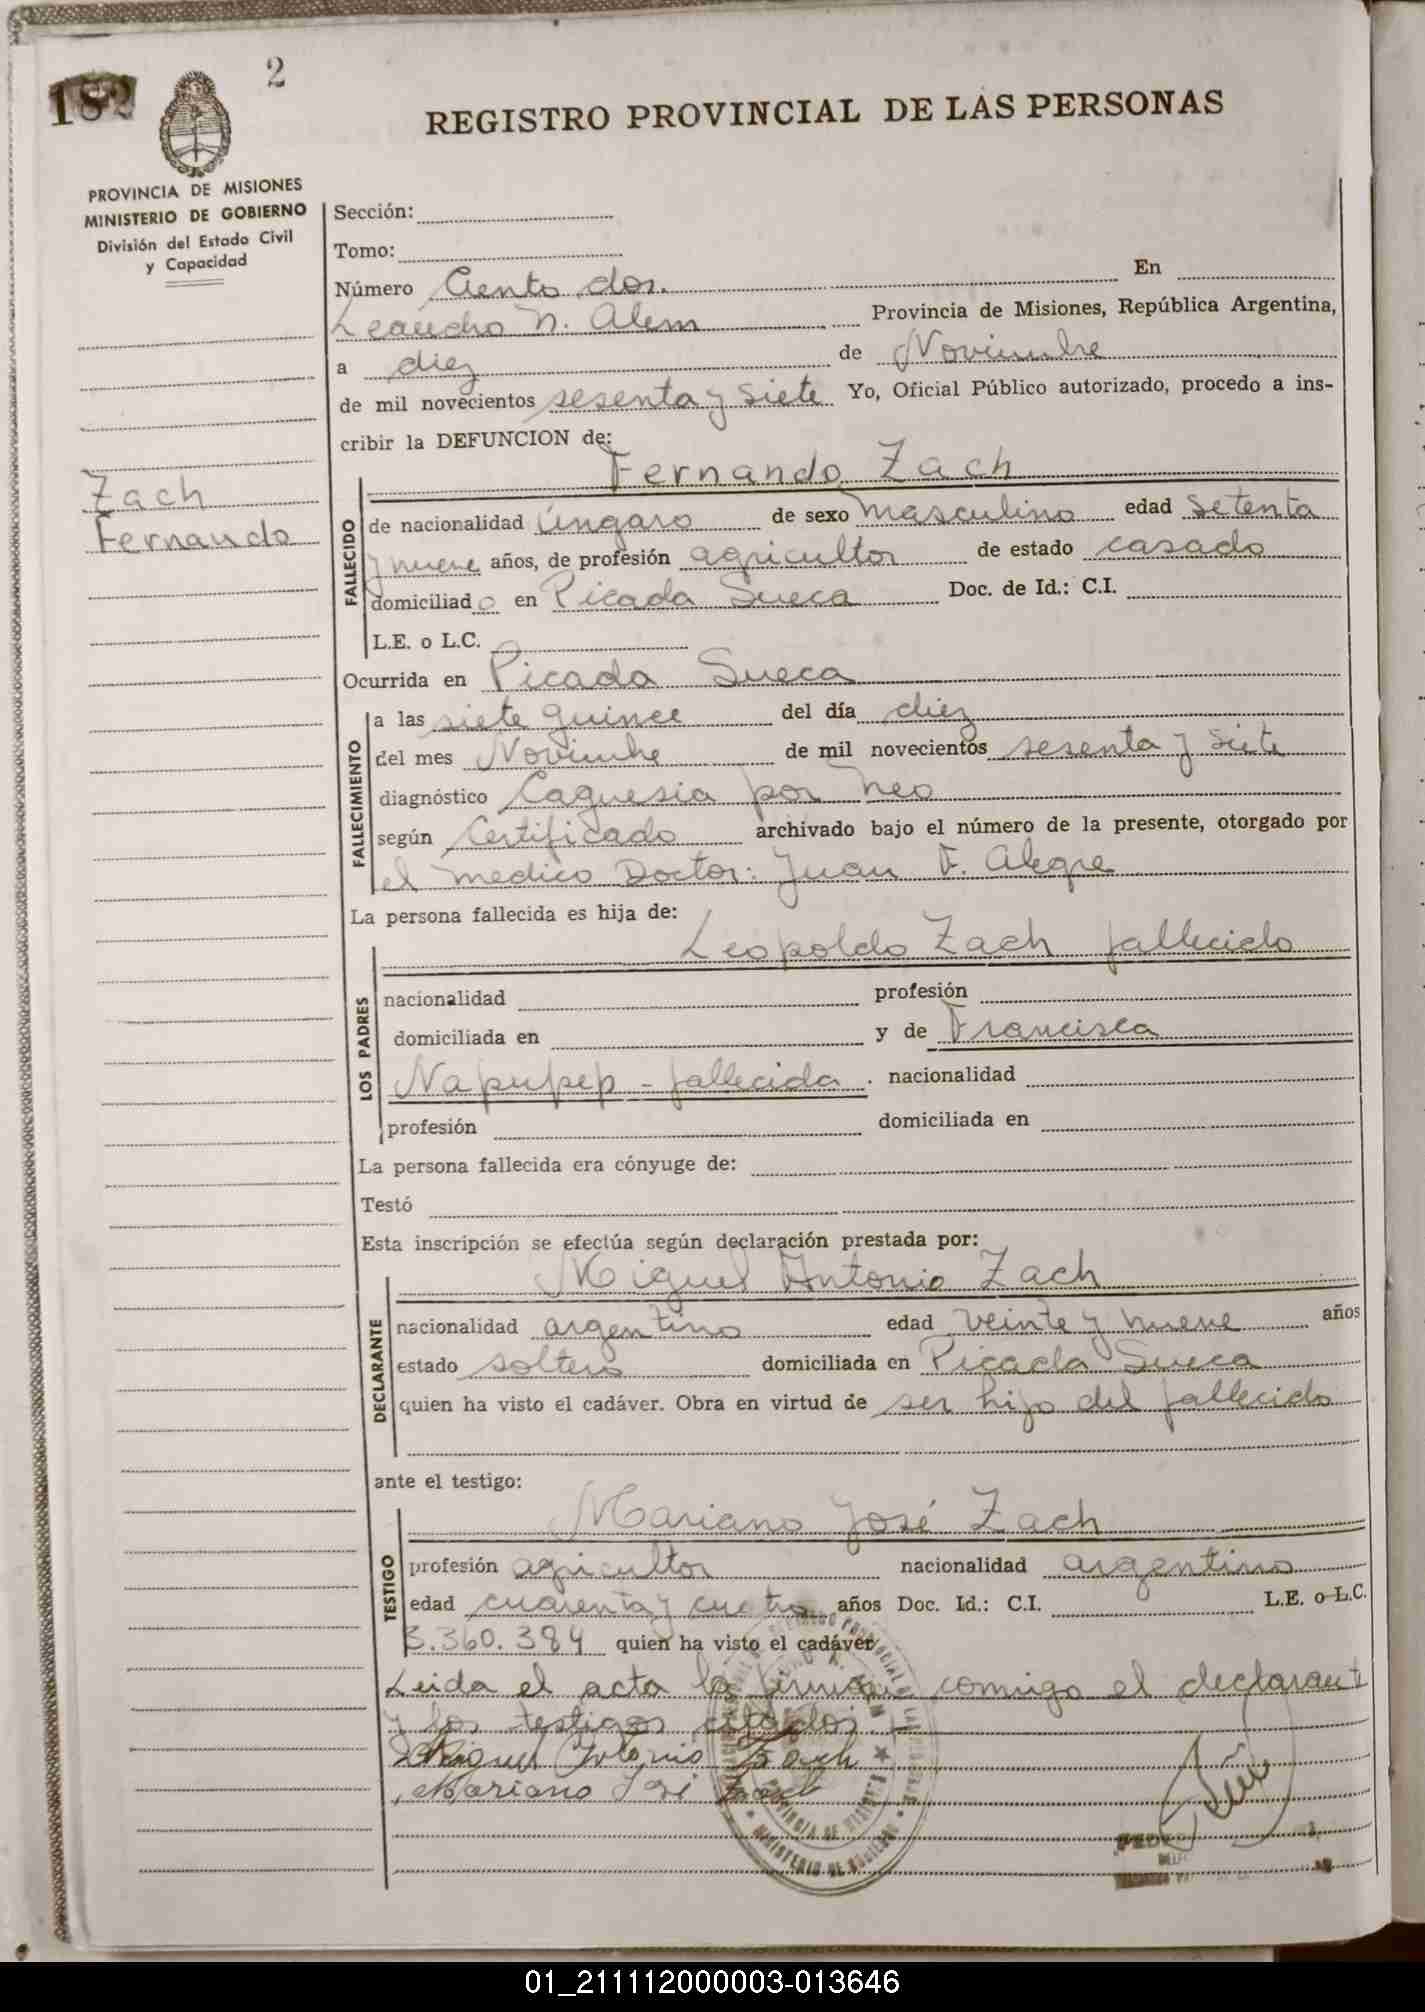 182
2
REGISTRO PROVINCIAL DE LAS PERSONAS
PROVINCIA DE MISIONES
MINISTERIO DE GOBIERNO
División del Estado Civil
y Capacidad
Zach
Fernando
Sección:
Tomo:
Número Ciento dos. En
Leandro N. Alem Provincia de Misiones, República Argentina,
a diez de Noviembre
de mil novecientos sesenta y siete Yo, Oficial Público autorizado, procedo a ins-
cribir la DEFUNCION de:
Fernando Zach
FALLECIDO
de nacionalidad Úngaro de sexo masculino edad setenta
y nueve años, de profesión agricultor de estado casado
domiciliado en Picada Sueca Doc. de Id.: C.I.
L.E. o L.C.
Ocurrida en Picada Sueca
FALLECIMIENTO
a las siete quince del día diez
del mes Noviembre de mil novecientos sesenta y siete
diagnóstico Caquesia por neo
según Certificado archivado bajo el número de la presente, otorgado por
el medico Doctor: Juan F. Alegre
La persona fallecida es hija de:
Leopoldo Zach fallecido
LOS PADRES
nacionalidad profesión
domiciliada en y de Francisca
Napupep - fallecida. nacionalidad
profesión domiciliada en
La persona fallecida era cónyuge de:
Testó
Esta inscripción se efectúa según declaración prestada por:
Miguel Antonio Zach
DECLARANTE
nacionalidad argentino edad veinte y nueve años
estado soltero domiciliada en Picada Sueca
quien ha visto el cadáver. Obra en virtud de ser hijo del fallecido
ante el testigo:
Mariano José Zach
TESTIGO
profesión agricultor nacionalidad argentino
edad cuarenta y cuatro años Doc. Id.: C.I. L.E. o L.C.
3.360.384 quien ha visto el cadáver
Leida el acta la firman comigo el declarant
y los testigos citados.
Miguel Antonio Zach
Mariano José Zach
PROVINCIA DE MISIONES
MINISTERIO DE GOBIERNO
01_211112000003-013646